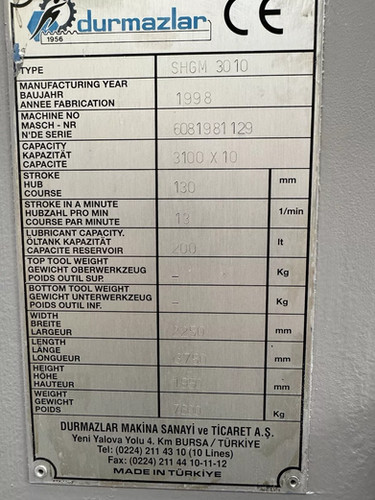 durmazlar
1956
CE
TYPE SHGM 3010
MANUFACTURING YEAR
BAUJAHR 1998
ANNEE FABRICATION
MACHINE NO
MASCH - NR 6081981129
N'DE SERIE
CAPACITY
KAPAZITÄT 3100 X 10
CAPACITE
STROKE
HUB 130 mm
COURSE
STROKE IN A MINUTE
HUBZAHL PRO MIN 13 1/min
COURSE PAR MINUTE
LUBRICANT CAPACITY.
ÖLTANK KAPAZITÄT 200 lt
CAPACITE RESERVOIR
TOP TOOL WEIGHT
GEWICHT OBERWERKZEUG – Kg
POIDS OUTIL SUP.
BOTTOM TOOL WEIGHT
GEWICHT UNTERWERKZEUG – Kg
POIDS OUTIL INF.
WIDTH
BREITE mm
LARGEUR
LENGTH
LÄNGE mm
LONGUEUR
HEIGHT
HÖHE mm
HAUTEUR
WEIGHT
GEWICHT Kg
POIDS
DURMAZLAR MAKİNA SANAYİ ve TİCARET A.Ş.
Yeni Yalova Yolu 4. Km BURSA / TÜRKİYE
Tel: (0224) 211 43 10 (10 Lines)
Fax: (0224) 211 44 10-11-12
MADE IN TÜRKİYE